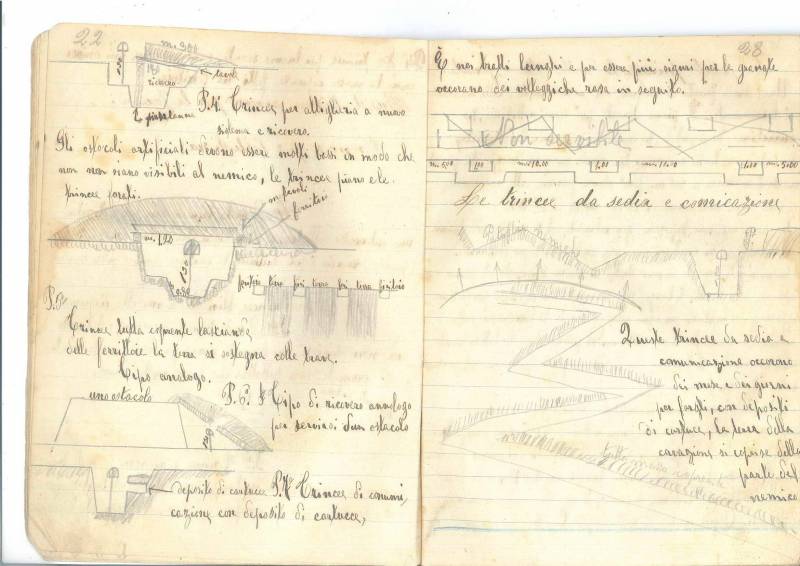 22
m. 3,00
0,80
tavole
ricovero
P. 4ª Trincea per attiglaria a nuovo
sistema e ricovero.
Gli ostocoli artificiali devono essere molti bassi in modo che
non non siano visibili al nemico, le trincee piano ele.
trincee forati.
m. 1,20
1,30
0,80
feritoie
terra
terra
feritoie
P. 5ª
Trincea tutta coprente lasciando
delle ferrittoie la terra si sostegna colle trave.
Tipo analogo.
uno ostacolo
P. 6ª Tipo di ricovero annalogo
per servirsi d'un ostacolo
deposito di cartucce P. 7ª Trincea di comuni,
cazione con deposito di cartucce,
28
È nei tratti lunghi e per essere più siguri per le granate
occorano dei volteggi che rasa in seguito.
Non servibile
m. 5,00 1,00 m. 10,00 1,00 m. 10,00 1,00 m. 5,00
Le trincee da sedia e comicazione
Queste trincee da sedia e
comunicazione occorono
dei mesi e dei giorni
per forgli, con depositi
di cartucce, la terra della
cavazione si coprise della
parte del
nemico